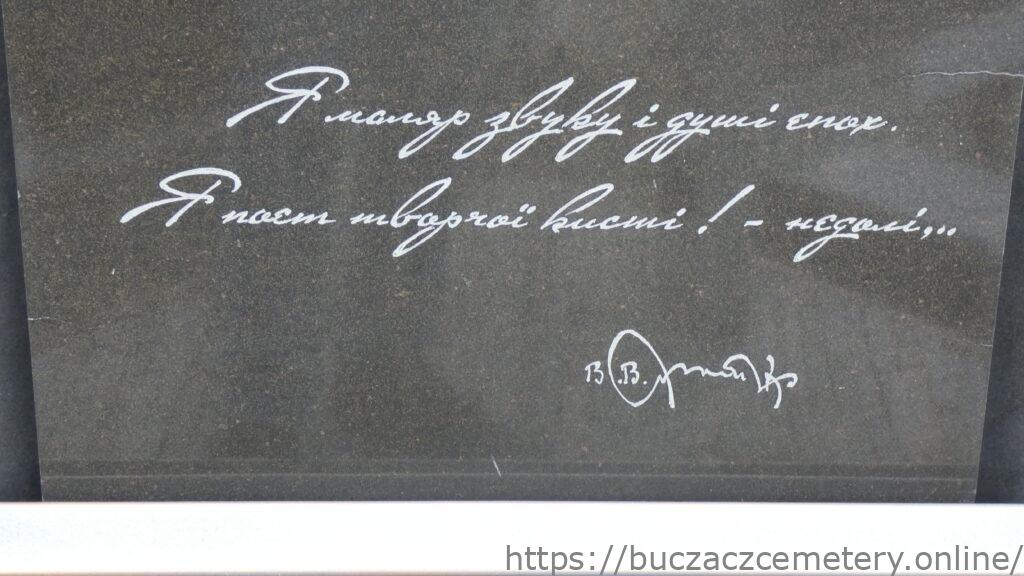 Я маляр звуку і душі епох.
Я поет творчої кисті! - недолі,..
В.В.
https://buczaczcemetery.online/